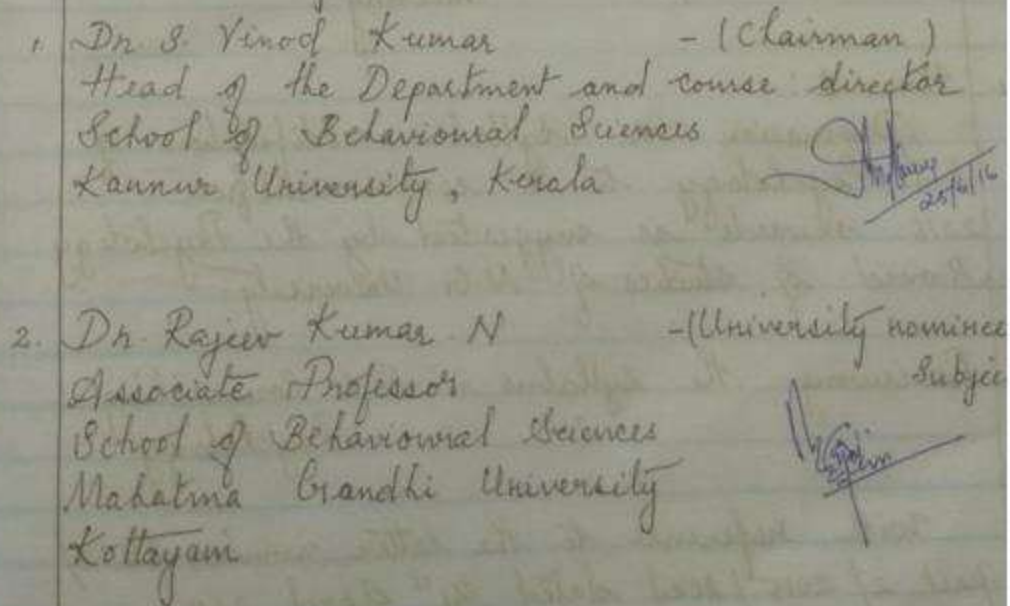 1. Dr. S. Vinod Kumar - (Chairman)
Head of the Department and course director
School of Behavioural Sciences
Kannur University, Kerala
25/6/16
2. Dr. Rajeev Kumar N -(University nominee
Subjec
Associate Professor
School of Behavioural Sciences
Mahatma Gandhi University
Kottayam